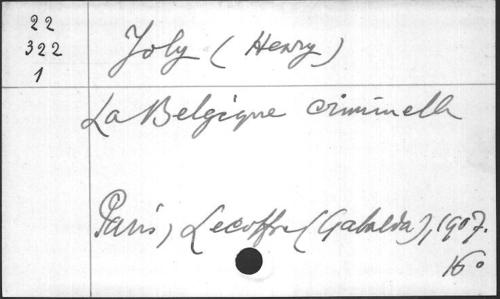 22
322
1
Joly (Henry)
La Belgique criminelle
Paris, Lecoffre (Gabalda), 1907.
16°